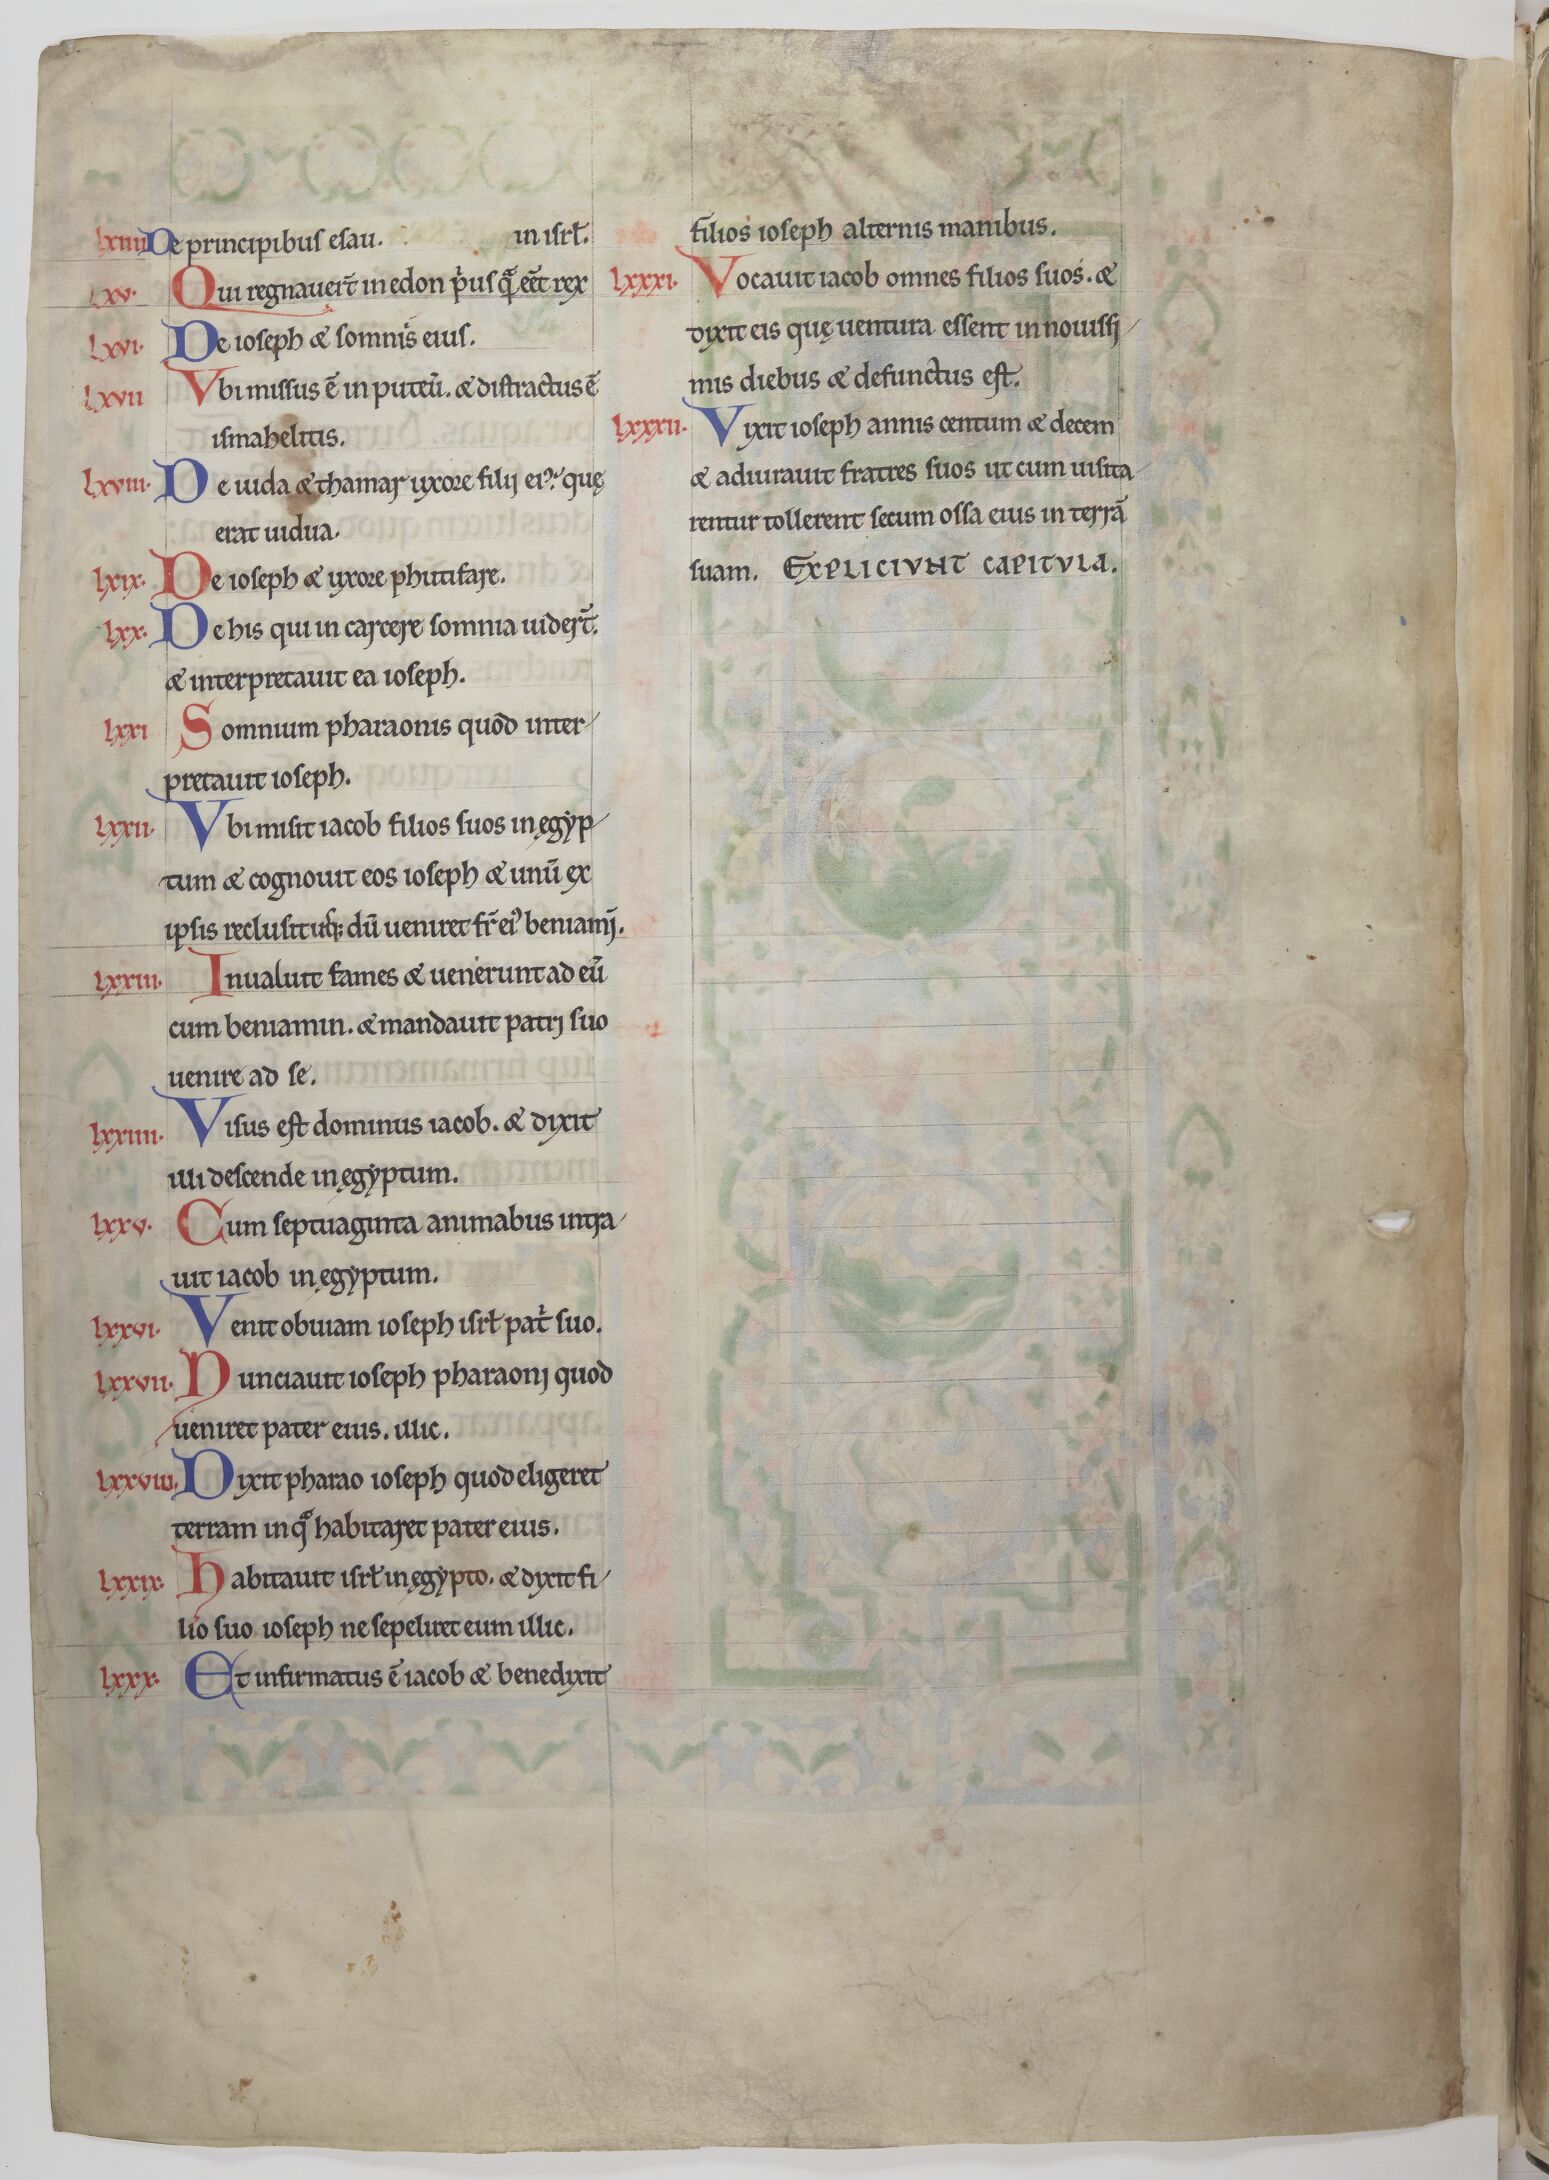 lxiiii De principibus esau. in isrł.
lxv. Qui regnauer̄t in edon p̾us q̄ꝫ eēt rex
lxvi. De ioseph & somnís eius.
lxvii Vbi missus ē in puteū. & distractus ē
ismahelitis.
lxviii. De iuda & thamar uxore filij eiꝰ quę
erat uidua.
lxix. De ioseph & uxore phutifare.
lxx. De his qui in carcere somnia uider̄t.
& interpretauit ea ioseph.
lxxi Somnium pharaonis quod inter
pretauit ioseph.
lxxii. Vbi misit iacob filios suos in ęgyp
tum & cognouit eos ioseph & unū ex
ipsis reclusit usq; dū ueniret fr̄ eiꝰ beniamī.
lxxiii. Inualuit fames & uenerunt ad eū
cum beniamin. & mandauit patri suo
uenire ad se.
lxxiiii. Visus est dominus iacob. & dixit
illi descende in ęgyptum.
lxxv. Cum septuaginta animabus intra
uit iacob in ęgyptum.
lxxvi. Venit obuiam ioseph isrł pat̾ suo.
lxxvii. Nunciauit ioseph pharaoni quod
ueniret pater eius. illic.
lxxviii. Dixit pharao ioseph quod eligeret
terram in qͣ habitaret pater eius.
lxxix. Habitauit isrł in ęgypto. & dixit fi
lio suo ioseph ne sepeliret eum illic.
lxxx. Et infirmatus ē iacob & benedixit
filios ioseph alternis manibus.
lxxxi. Vocauit iacob omnes filios suos. &
dixit eis quę uentura essent in nouissi
mis diebus & defunctus est.
lxxxii. Vixit ioseph annis centum & decem
& adiurauit fratres suos ut cum uisita
rentur tollerent secum ossa eius in terrā
suam. EXPLICIVNT CAPITVLA.